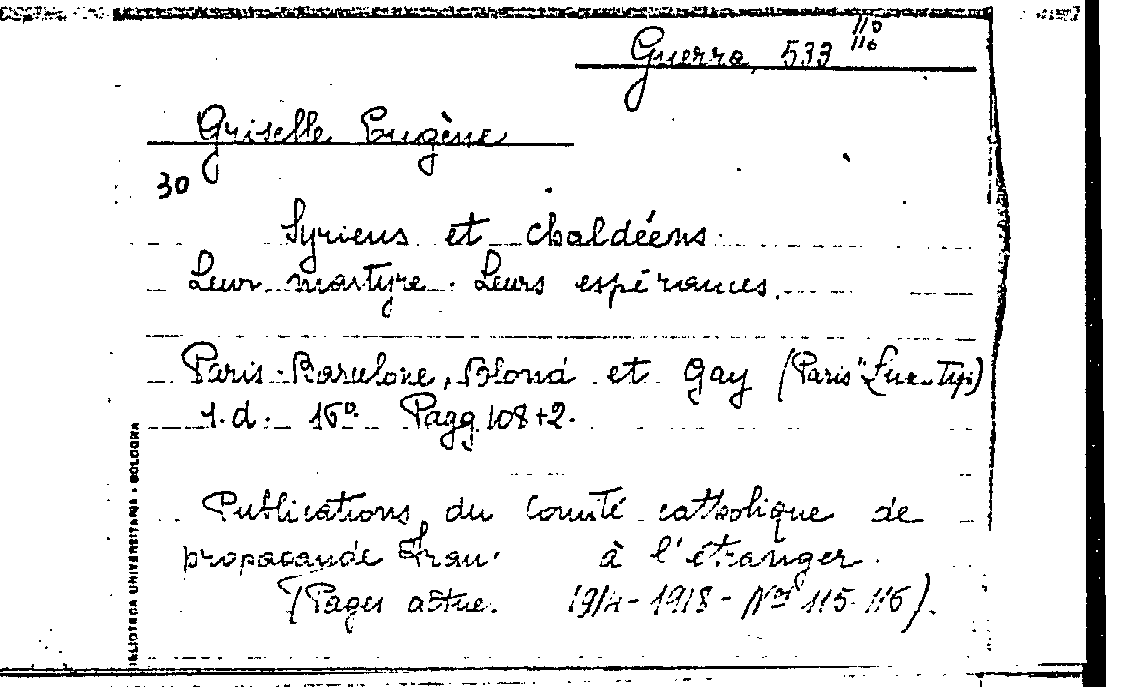 Guerra, 533 110
116
Griselle Eugène
30
Syriens et chaldéens.
Leur martyre. Leurs espérances.
Paris-Barcelone, Bloud et Gay (Paris "Lux-Typ)
s.d. 16°. Pagg. 108+2.
Publications du Comité catholique de
propagande fran. à l'étranger.
(Pages actue. 1914-1918 - Nos 115-116).
BIBLIOTECA UNIVERSITARIA - BOLOGNA